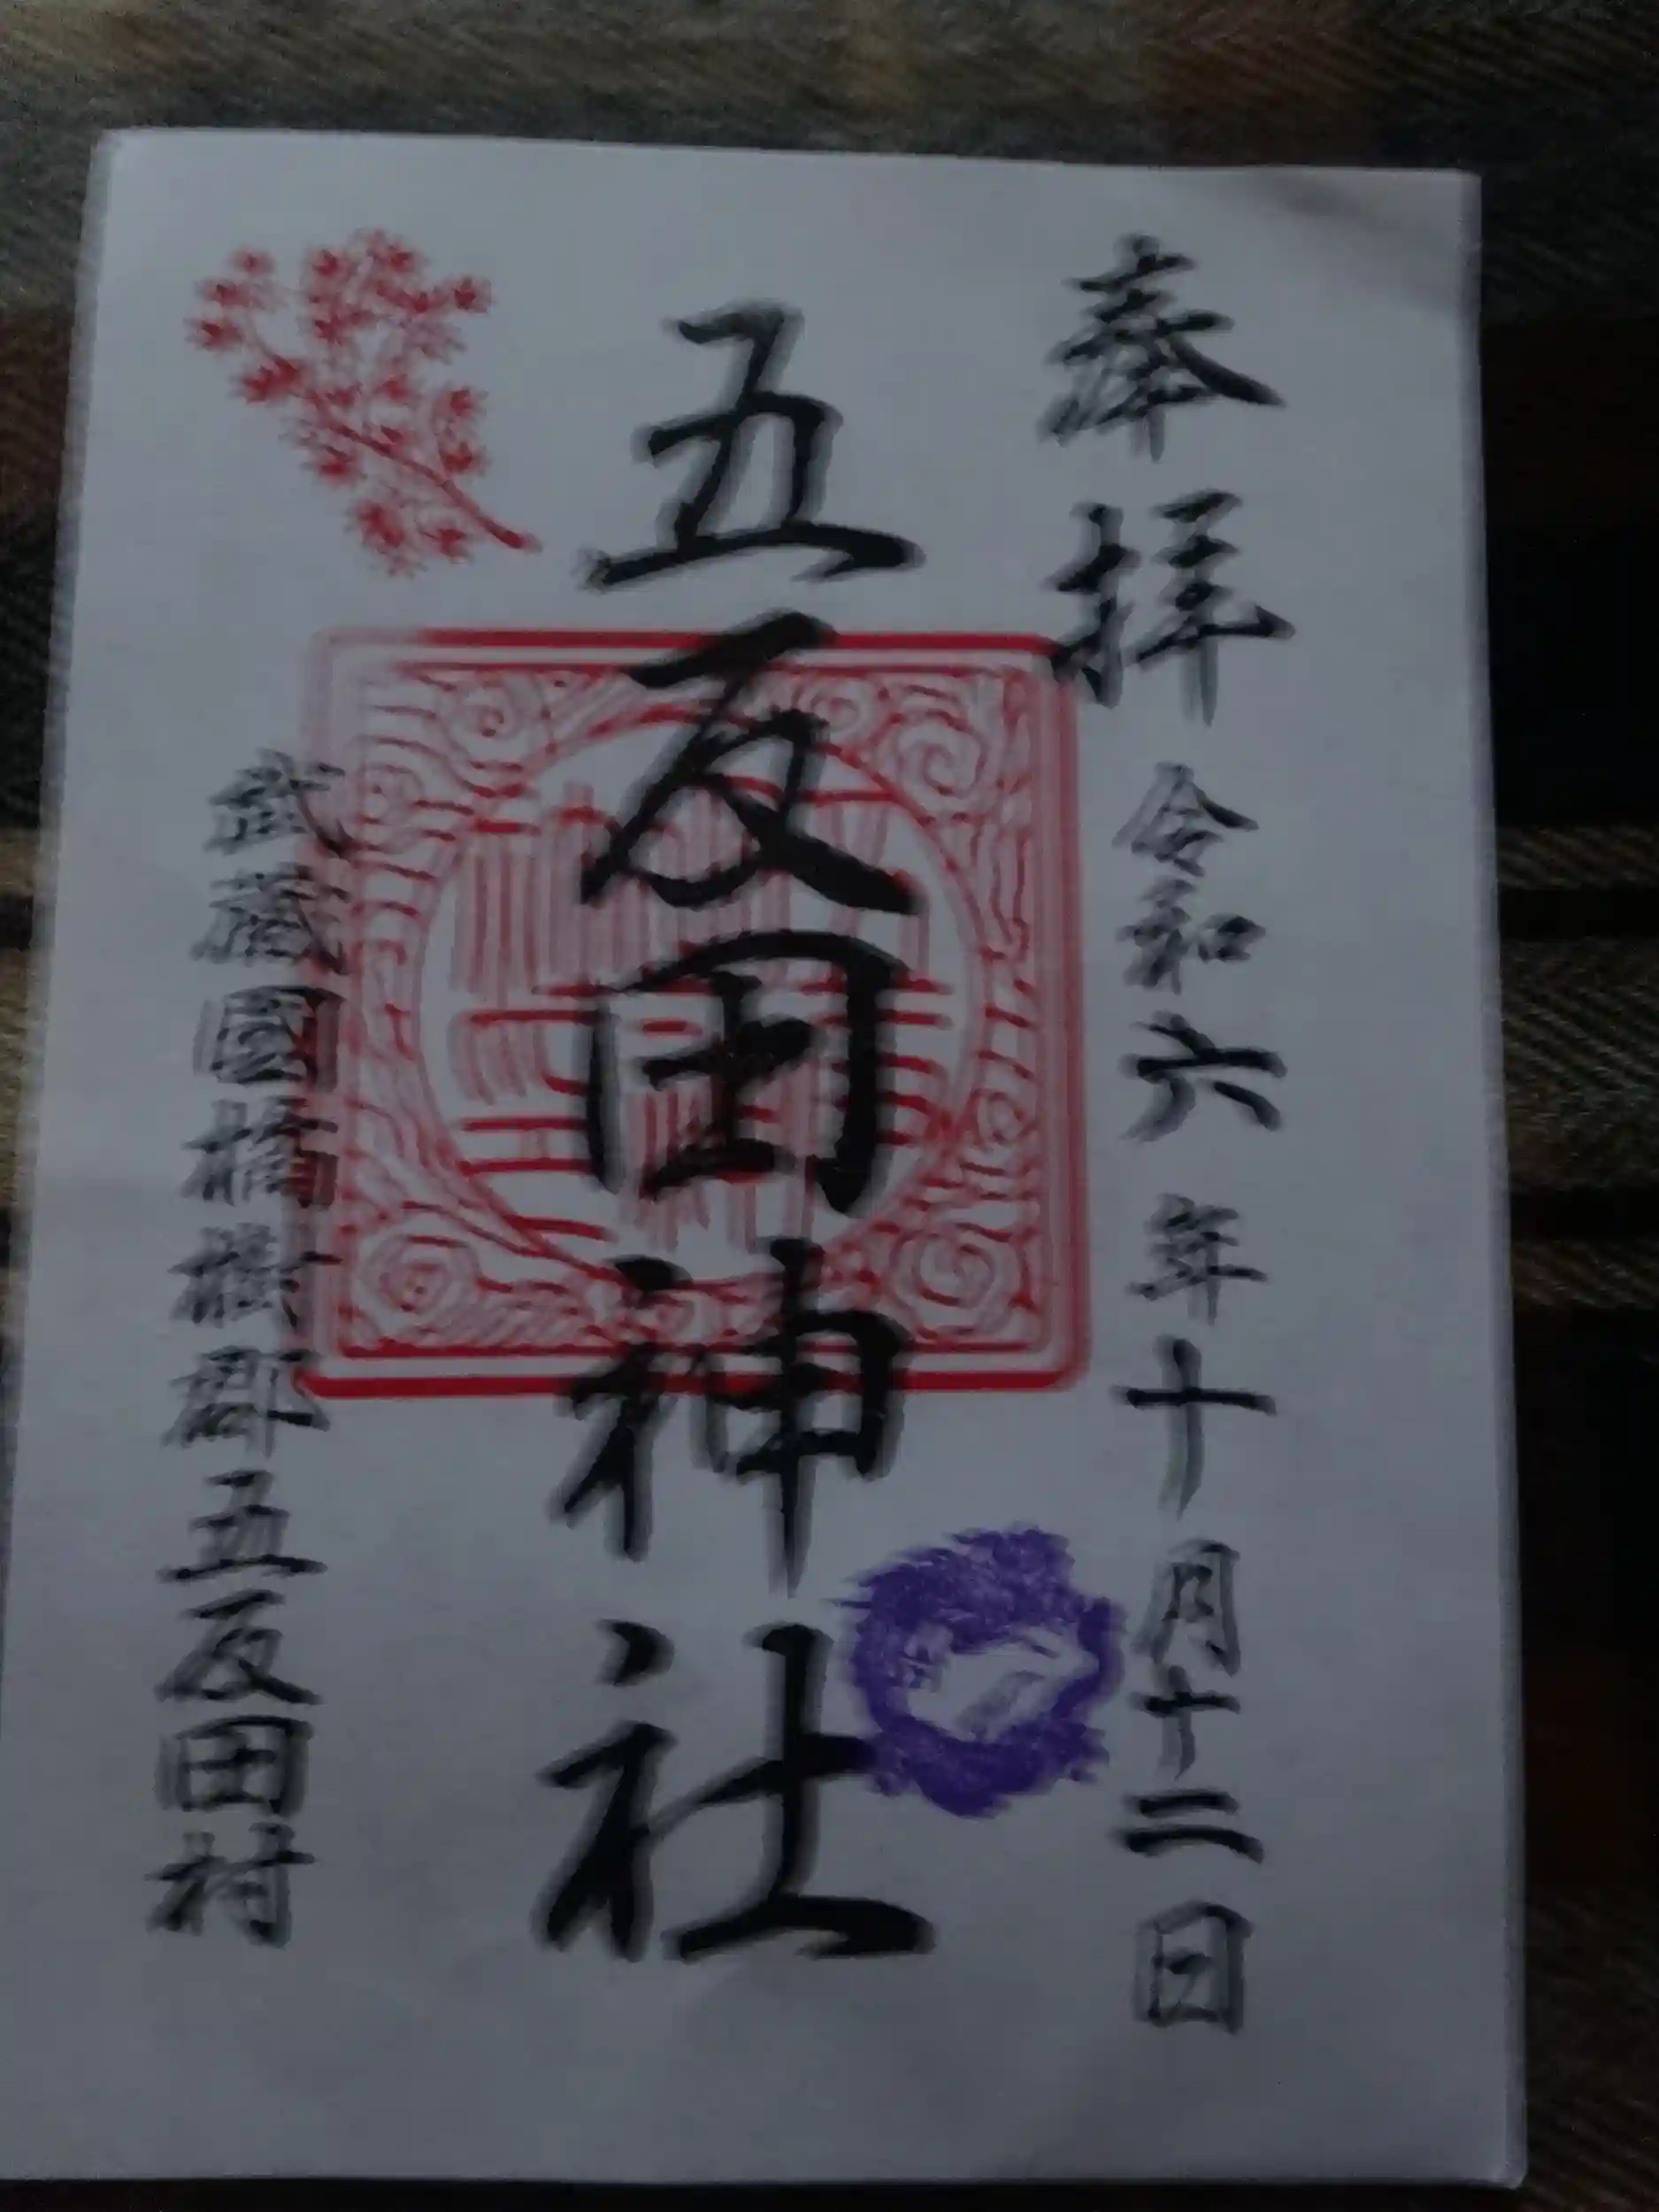 奉拝 令和六年十月十二日
五反田神社
武藏國橘樹郡五反田村